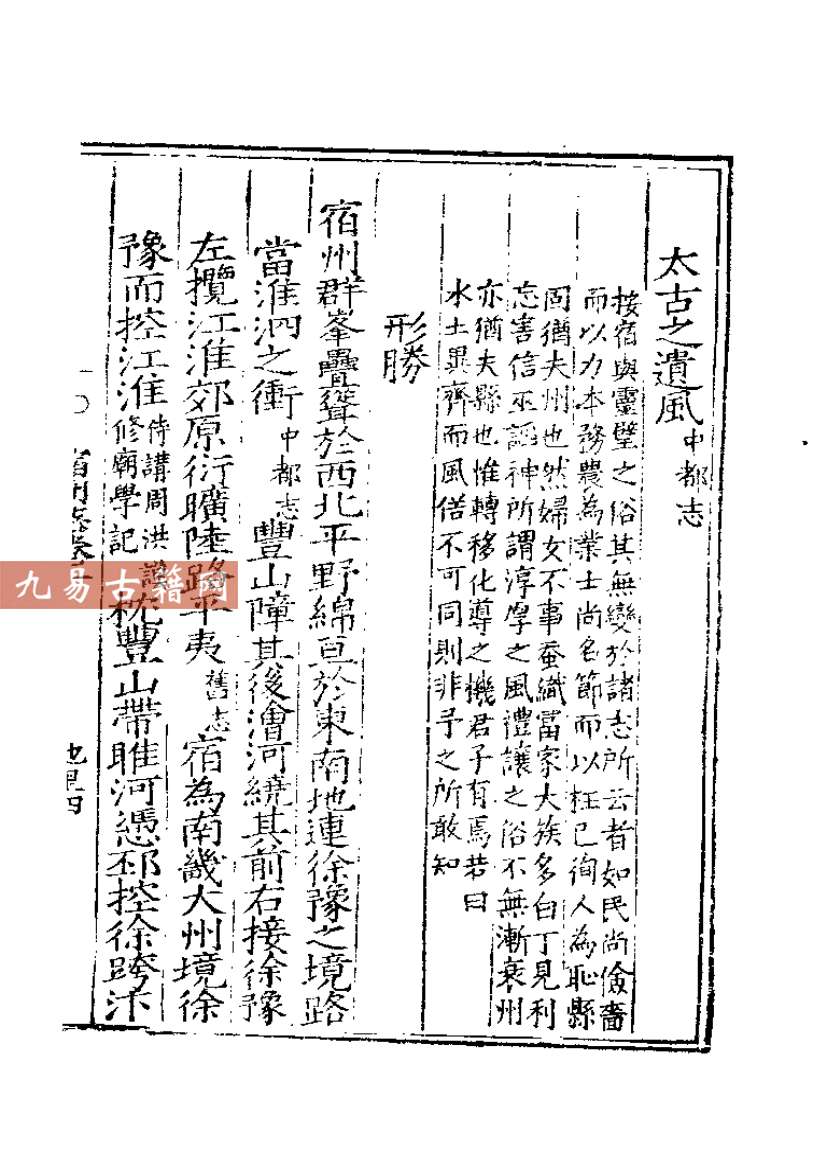 太古之遺風中都志
按宿與靈璧之俗其無變於諸志所云者如民尚儉嗇
而以力本務農為業士尚名節而以枉已徇人為恥縣
固猶夫州也然婦女不事蚕織富家大族多白丁見利
忘害信巫謟神所謂淳厚之風禮讓之俗不無漸衰州
亦猶夫縣也惟轉移化導之機君子有焉若曰
水土異齊而風俗不可同則非予之所敢知
形勝
宿州群峯疊聳於西北平野綿亘於東南地連徐豫之境路
當淮泗之衝中都志豐山障其後澮河繞其前右接徐豫
左攬江淮郊原衍曠陸路平夷舊志宿為南畿大州境徐
豫而控江淮侍講周洪謨修廟學記枕豐山帶睢河憑邳控徐跨汴
宿州志卷
地里四
九易古籍网